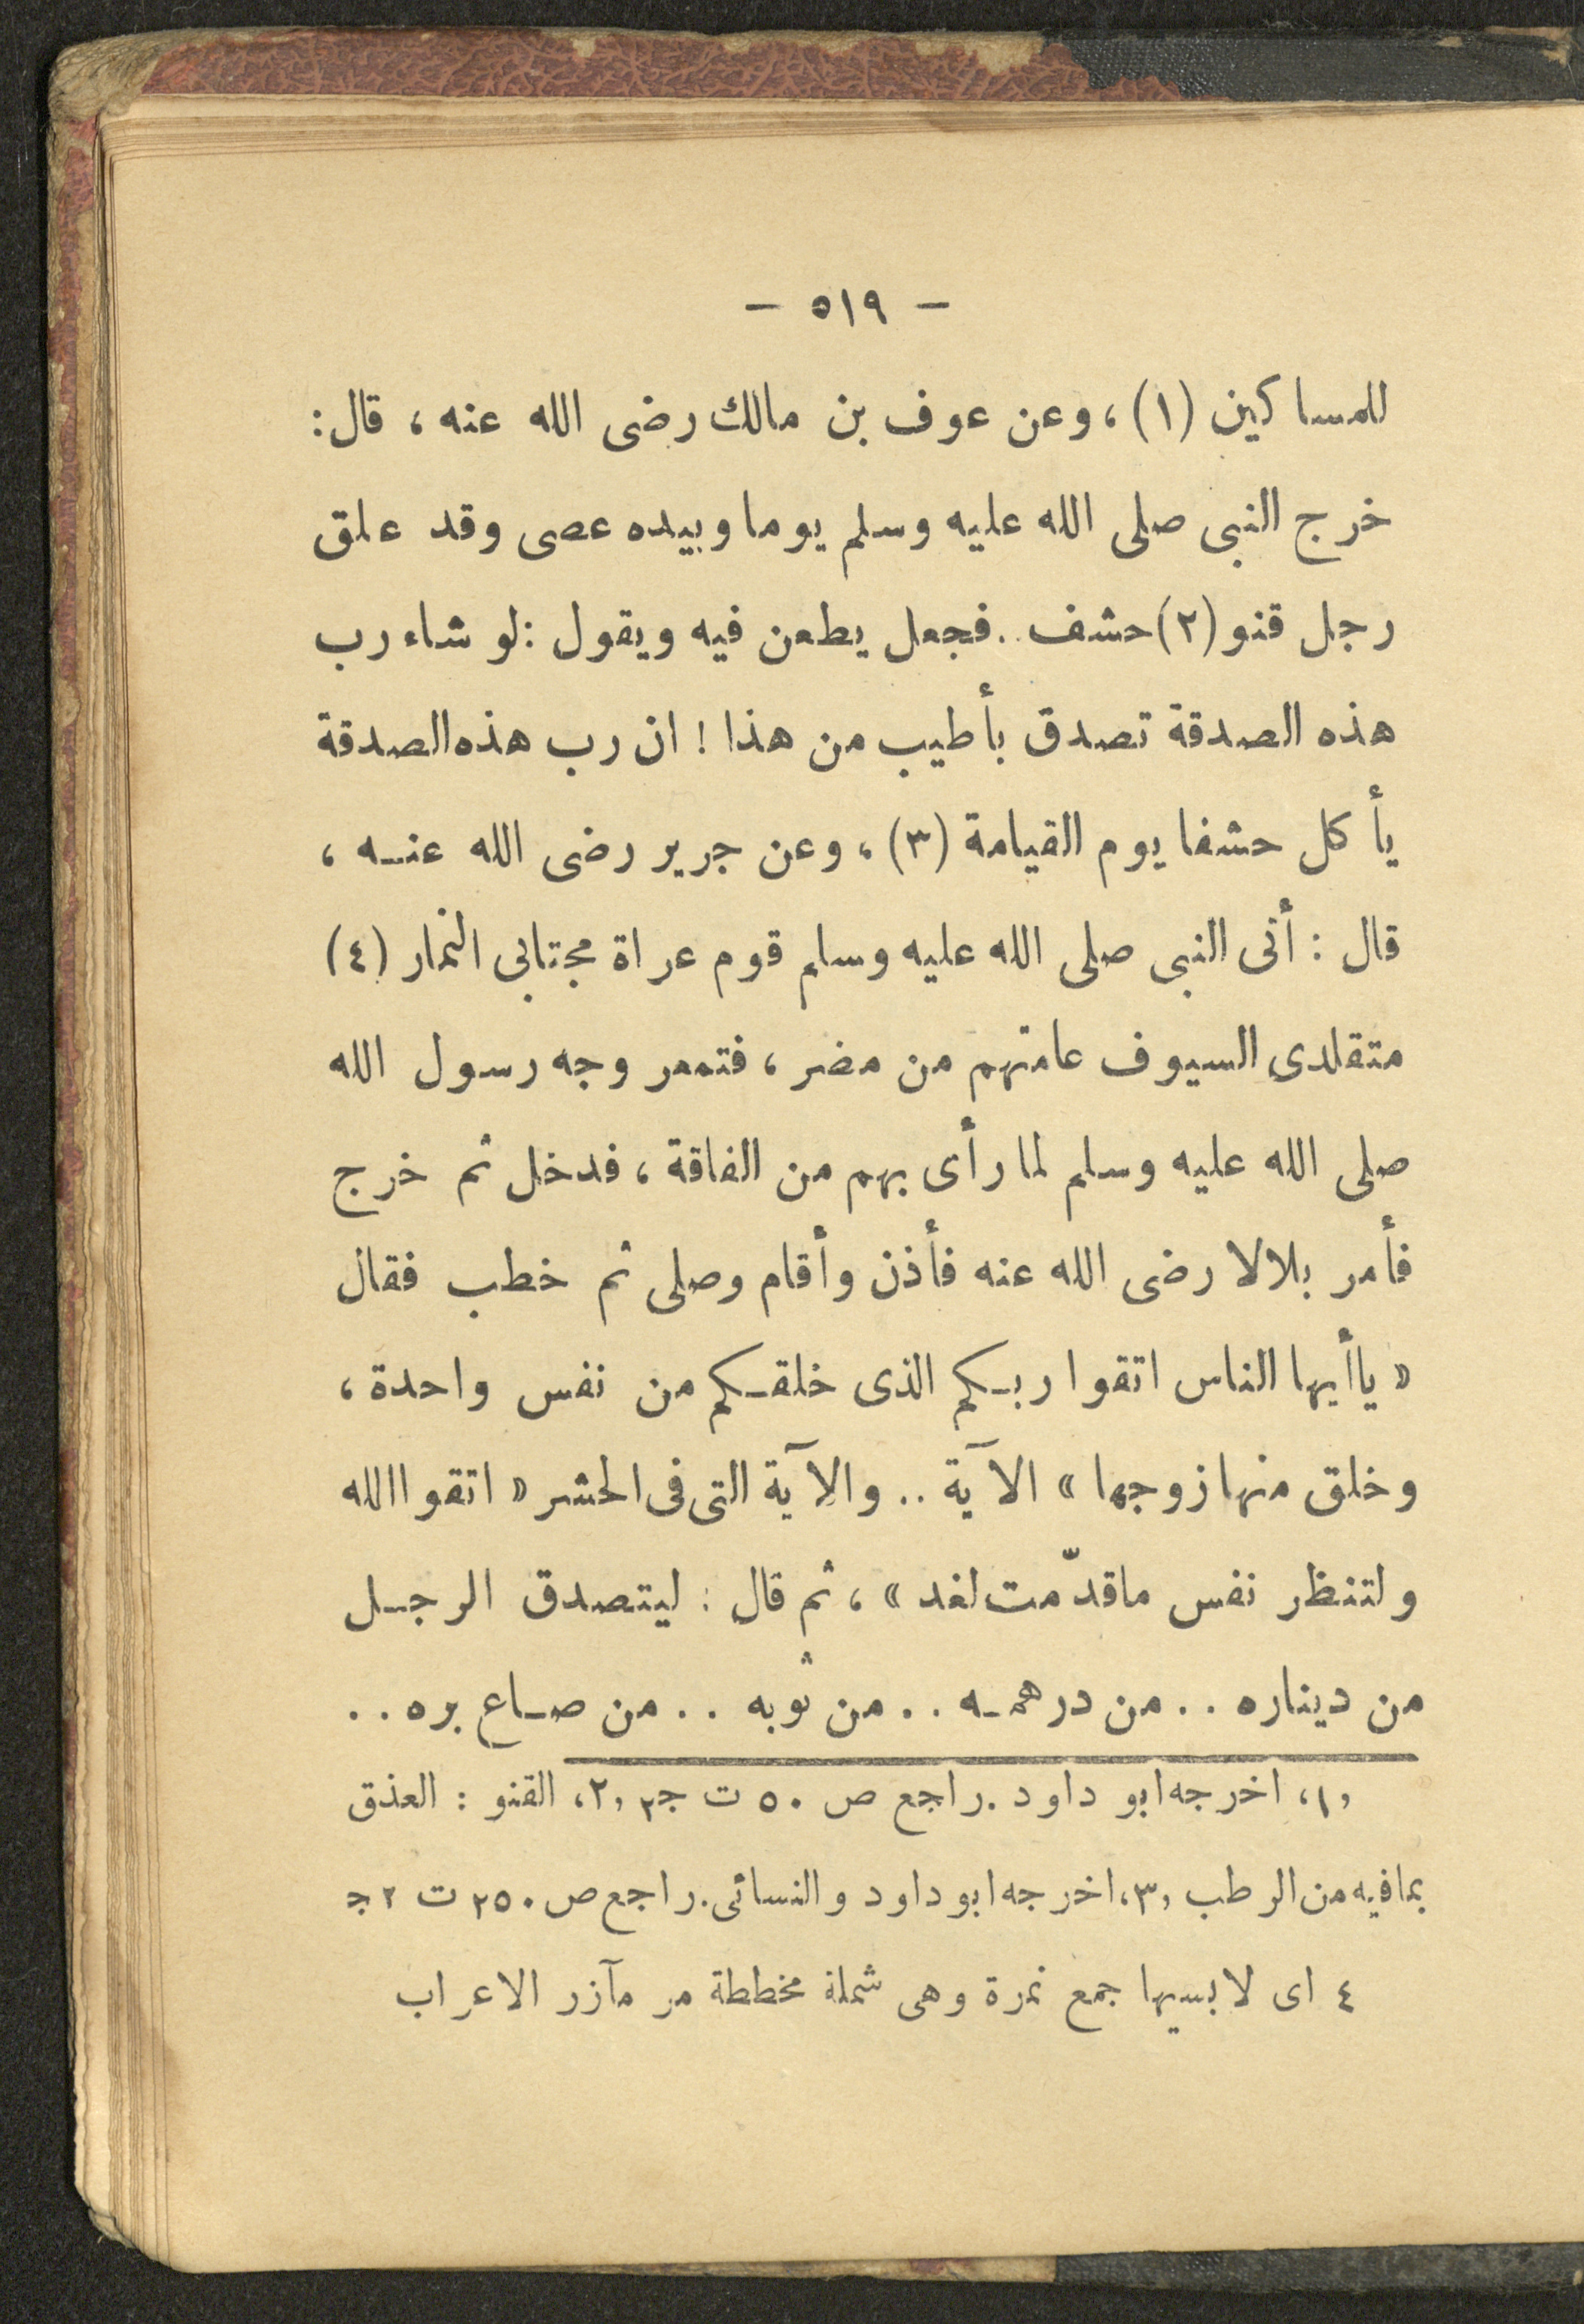 — ٥١٩ —
للمساكين (١)، وعن عوف بن مالك رضى الله عنه، قال:
خرج النبى صلى الله عليه وسلم يوما وبيده عصى وقد علق
رجل قنو (٢) حشف .. فجعل يطعن فيه ويقول: لو شاء رب
هذه الصدقة تصدق بأطيب من هذا! ان رب هذه الصدقة
يأكل حشفا يوم القيامة (٣)، وعن جرير رضى الله عنـه،
قال: أتى النبى صلى الله عليه وسلم قوم عراة مجتابى النمار (٤)
متقلدى السيوف عامتهم من مضر، فتمعر وجه رسول الله
صلى الله عليه وسلم لما رأى بهم من الفاقة، فدخل ثم خرج
فأمر بلالا رضى الله عنه فأذن وأقام وصلى ثم خطب فقال
« ياأيها الناس اتقوا ربـكم الذى خلقـكم من نفس واحدة،
وخلق منها زوجها » الآية .. والآية التى فى الحشر « اتقوا الله
ولتنظر نفس ماقدّمت لغد »، ثم قال: ليتصدق الرجـل
من ديناره .. من درهمـه .. من ثوبه .. من صـاع بره ..
,١، اخرجه ابو داود. راجع ص ٥٠ ت ج٢ ,٢، القنو: العذق
بمافيه من الرطب ,٣، اخرجه ابو داود والنسائى. راجع ص ٢٥٠ ت ٢ ج
٤ اى لابسيها جمع نمرة وهى شملة مخططة مر مآزر الاعراب